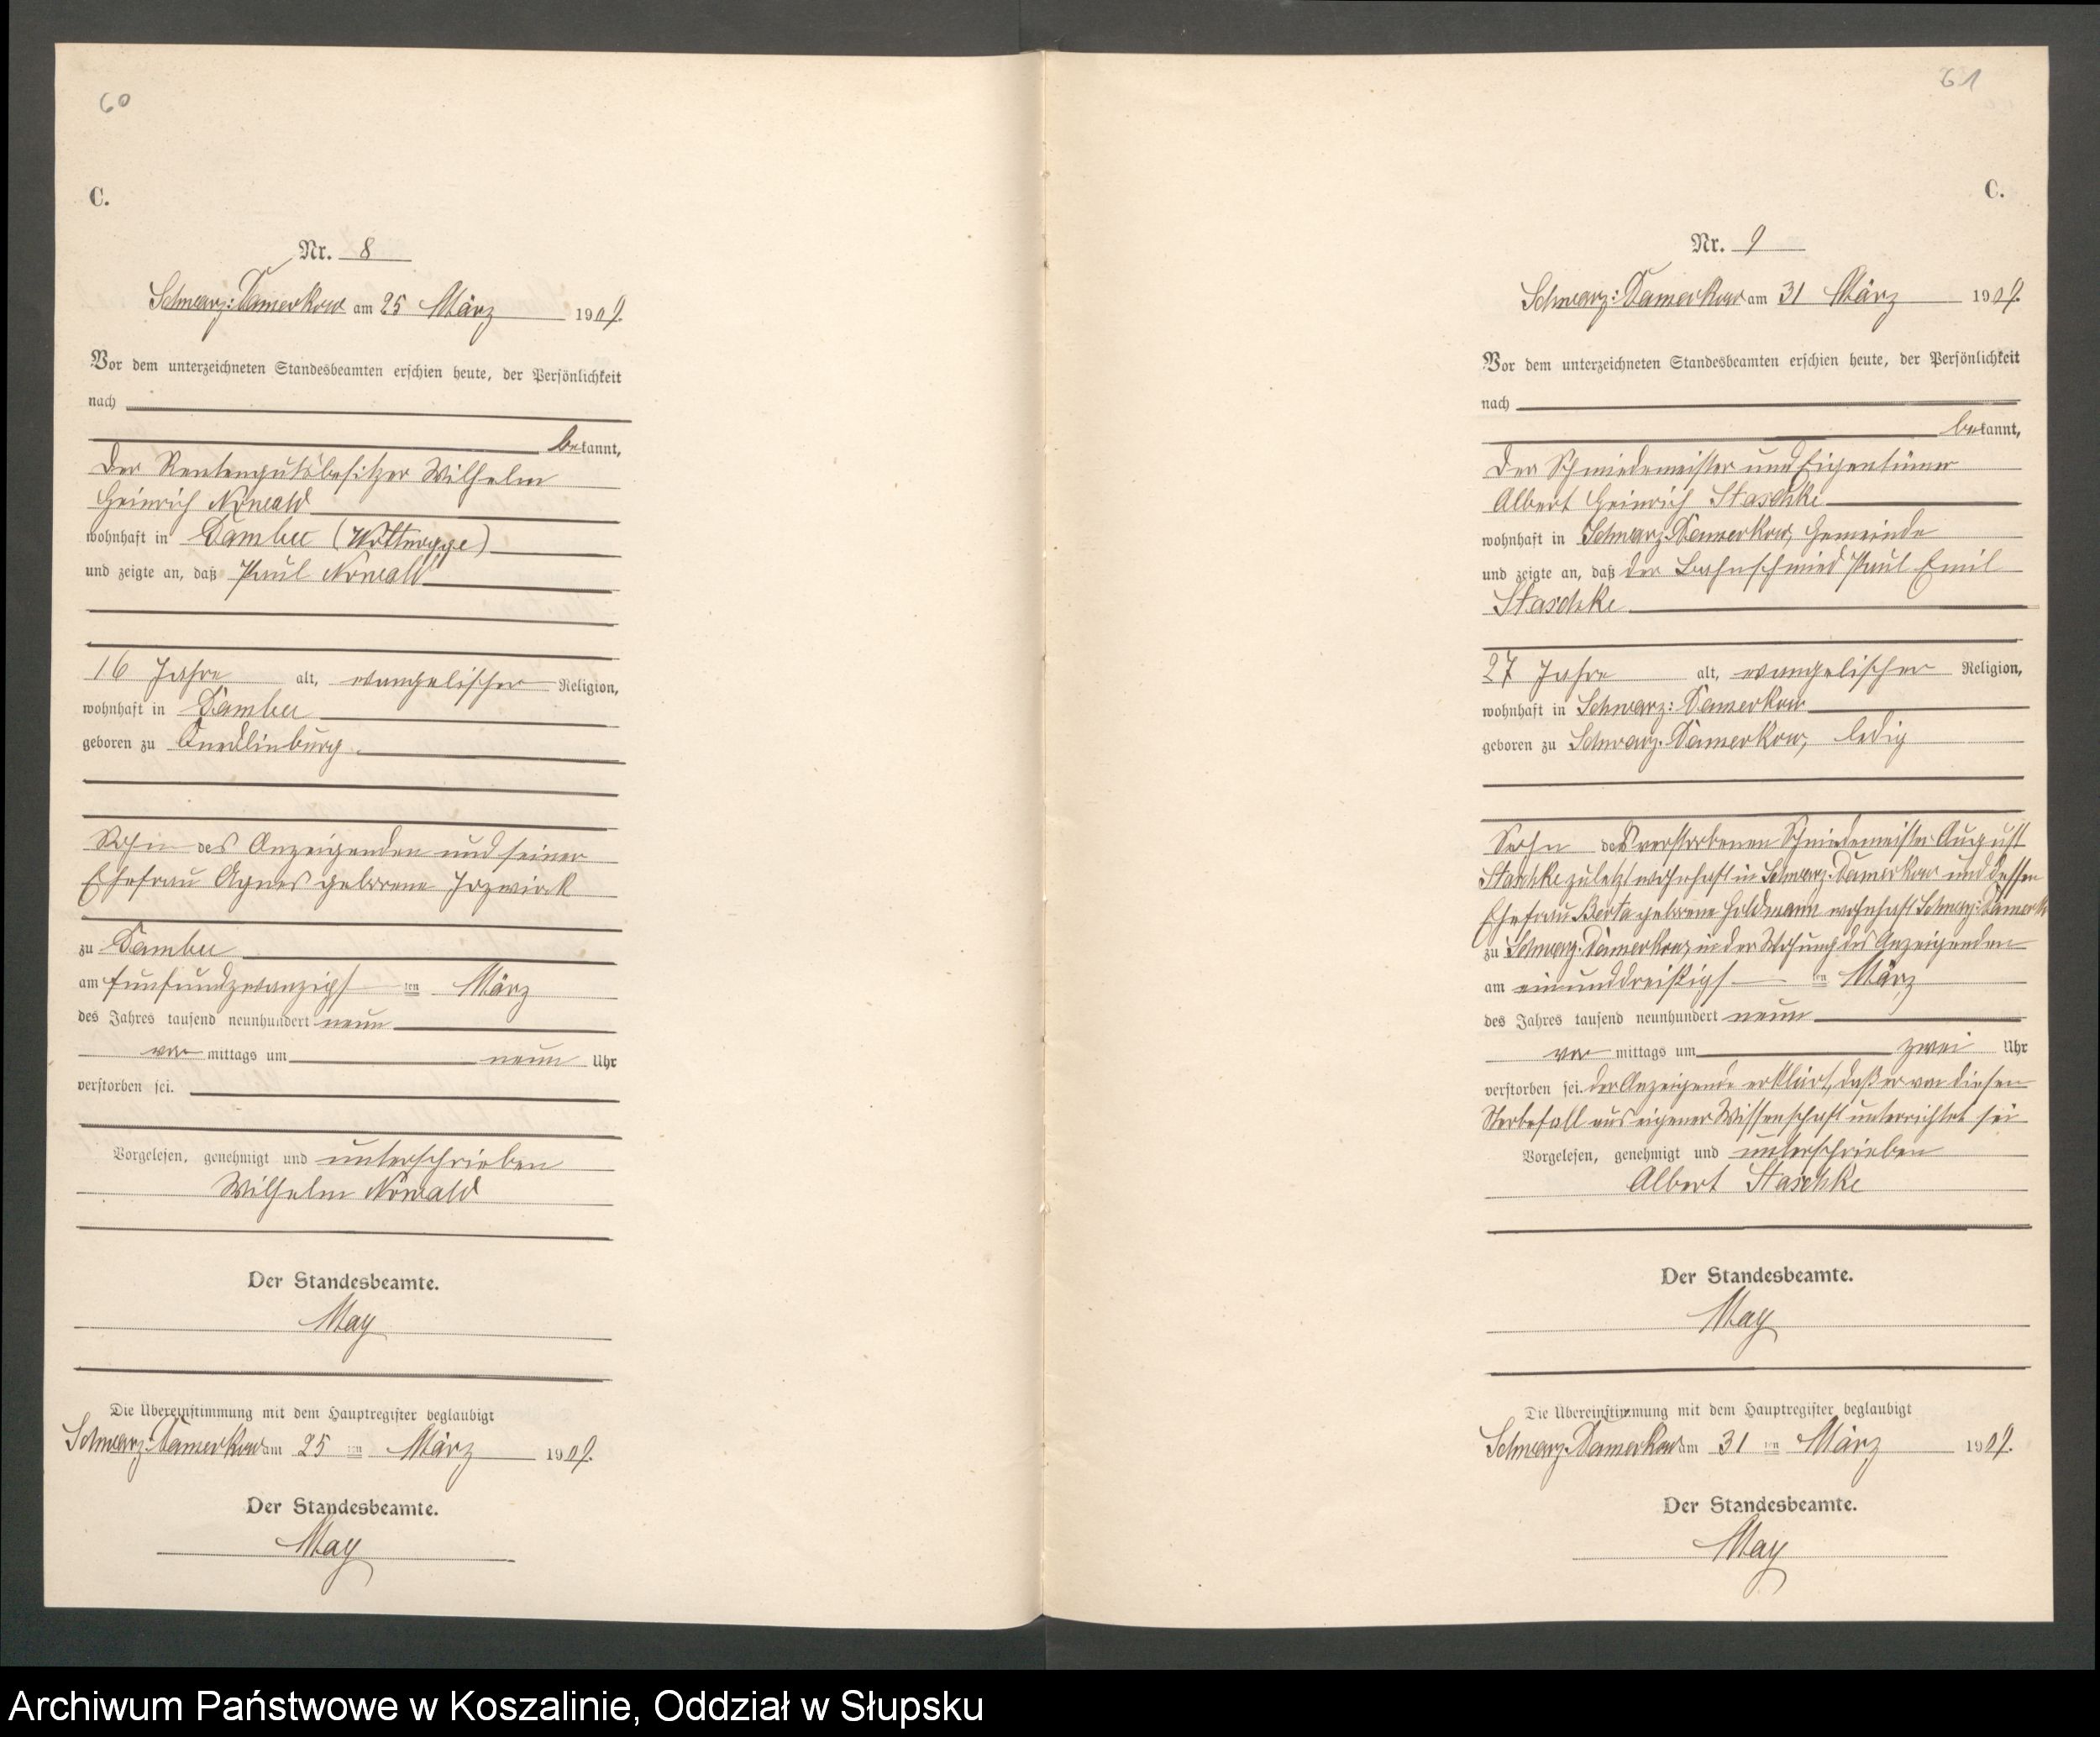 60
C.
Nr. 8
Schwarz-Damerkow am 25 März 1909.
Vor dem unterzeichneten Standesbeamten erschien heute, der Persönlichkeit
nach
bekannt,
der Rentengutsbesitzer Wilhelm
Heinrich Nowald
wohnhaft in Dambee
und zeigte an, daß Paul Nowald
16 Jahre alt, evangelischer Religion,
wohnhaft in Dambee
geboren zu Quedlinburg
Sohn des Anzeigenden und seiner
Ehefrau Agnes geborene Jozwiak
zu Dambee
am fünfundzwanzigsten März
des Jahres tausend neunhundert neun
vor mittags um neun Uhr
verstorben sei.
Vorgelesen, genehmigt und unterschrieben
Wilhelm Nowald
Der Standesbeamte.
May
Die Übereinstimmung mit dem Hauptregister beglaubigt
Schwarz-Damerkow am 25 ten März 1909.
Der Standesbeamte.
May
61
C.
Nr. 9
Schwarz-Damerkow am 31 März 1909.
Vor dem unterzeichneten Standesbeamten erschien heute, der Persönlichkeit
nach
bekannt,
der Schmiedemeister und Eigentümer
Albert Heinrich Staschke
wohnhaft in Schwarz-Damerkow, Gemeinde
und zeigte an, daß der Bahnschmied Paul Emil
Staschke
27 Jahre alt, evangelischer Religion,
wohnhaft in Schwarz-Damerkow
geboren zu Schwarz-Damerkow, ledig
Sohn des verstorbenen Schmiedemeister August
Staschke zuletzt wohnhaft in Schwarz-Damerkow und dessen
Ehefrau Berta geborene Holdmann wohnhaft Schwarz-Damerk
zu Schwarz-Damerkow, in der Wohnung des Anzeigenden
am einunddreißigsten März
des Jahres tausend neunhundert neun
vor mittags um zwei Uhr
verstorben sei. der Anzeigende erklärt, daß er von diesen
Sterbefall aus eigener Wissenschaft unterrichtet sei
Vorgelesen, genehmigt und unterschrieben
Albert Staschke
Der Standesbeamte.
May
Die Übereinstimmung mit dem Hauptregister beglaubigt
Schwarz-Damerkow am 31 ten März 1909.
Der Standesbeamte.
May
Archiwum Państwowe w Koszalinie, Oddział w Słupsku